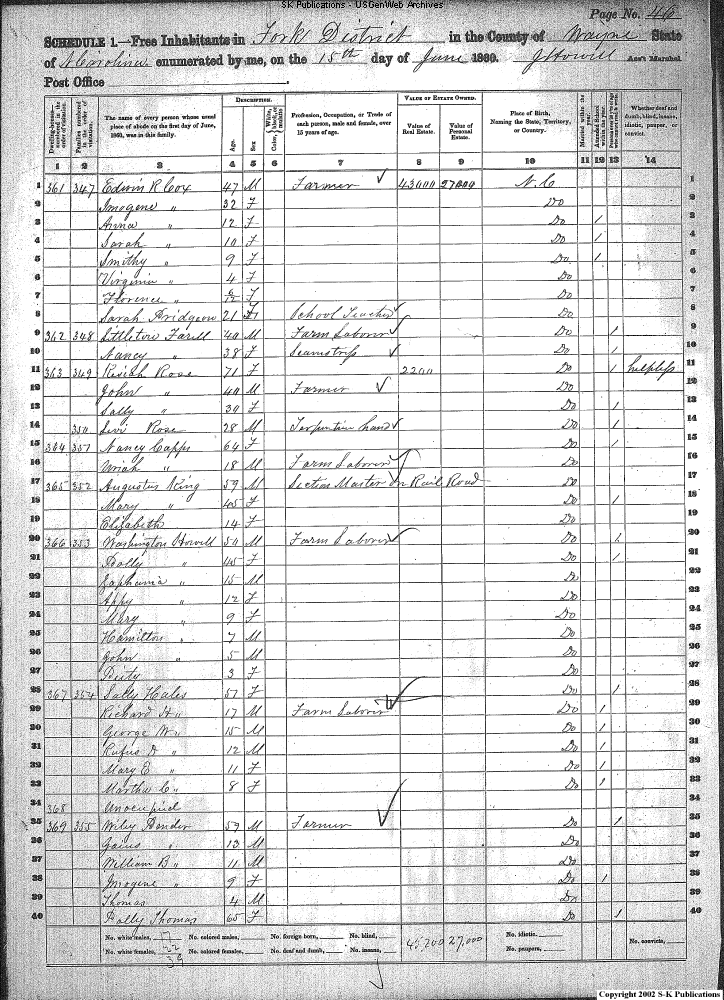 SK Publications - USGenWeb Archives
Page No. 46
SCHEDULE 1.—Free Inhabitants in Fork District in the County of Wayne State
of N Carolina enumerated by me, on the 15th day of June 1860. J Howell Ass't Marshal
Post Office
Dwelling-houses numbered in the order of visitation.
Families numbered in the order of visitation.
The name of every person whose usual place of abode on the first day of June, 1860, was in this family.
DESCRIPTION.
Age.
Sex.
Color, White, black, or mulatto.
Profession, Occupation, or Trade of each person, male and female, over 15 years of age.
VALUE OF ESTATE OWNED.
Value of Real Estate.
Value of Personal Estate.
Place of Birth, Naming the State, Territory, or Country.
Married within the year.
Attended School within the year.
Whether deaf and dumb, blind, insane, idiotic, pauper, or convict.
1 2 3 4 5 6 7 8 9 10 11 12 13 14
1 361 347 Edwin R Cox 47 M Farmer 43000 27000 N.C 1
2 Imogene " 32 F Do 2
3 Anna " 12 F Do / 3
4 Sarah " 10 F Do / 4
5 Smithy " 9 F Do / 5
6 Virginia " 4 F Do 6
7 Florence " 6/12 F Do 7
8 Sarah Bridgeon 21 F School Teacher Do 8
9 362 348 Littleton Farell 40 M Farm Laborer Do / 9
10 Nancy " 38 F Seamstress Do / 10
11 363 349 Kesiah Rose 71 F 2200 Do / helpless 11
12 John " 40 M Farmer Do 12
13 Sally " 30 F Do / 13
14 350 Levi Rose 28 M Terpentine hand Do / 14
15 364 351 Nancy Capps 64 F Do / 15
16 Uriah " 18 M Farm Laborer Do 16
17 365 352 Augustus King 59 M Section Master on Rail Road Do 17
18 Mary " 45 F Do / 18
19 Elizabeth 14 F Do 19
20 366 353 Washington Howell 50 M Farm Laborer Do / 20
21 Dolly " 45 F Do / 21
22 Zaphania " 15 M Do 22
23 Appy " 12 F Do 23
24 Mary " 9 F Do 24
25 Hamilton " 7 M Do 25
26 John " 5 M Do 26
27 3 F Do 27
28 367 354 Sally Hales 57 F Do / 28
29 Richard H " 17 M Farm Laborer Do / 29
30 George W " 15 M Do / 30
31 Rufus A " 12 M Do / 31
32 Mary E " 11 F Do / 32
33 Martha C " 8 F Do / 33
34 368 Unoccupied 34
35 369 355 Wiley Bender 59 M Farmer Do / 35
36 Gaius " 13 M Do 36
37 William B " 11 M Do 37
38 Imogene " 9 F Do / 38
39 Thomas 4 M Do 39
40 Dolly Thomas 65 F Do / 40
No. white males, No. colored males, No. foreign born, No. blind, 45,200 27,000 No. idiotic,
No. white females, 22 No. colored females, No. deaf and dumb, No. insane, No. paupers, No. convicts,
39
Copyright 2002 S-K Publications